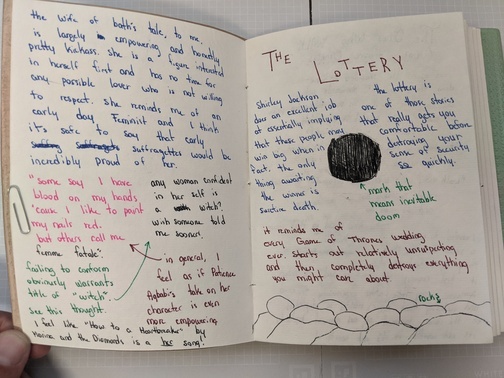 the wife of bath's tale, to me,
is largely empowering and honestly
pretty kickass. she is a figure interested
in herself first and has no time for
any possible lover who is not willing
to respect. she reminds me of an
early day feminist and I think
it's safe to say that early
suffragettes would be
incredibly proud of her.
"some say I have
blood on my hands
'cause I like to paint
my nails red.
but others call me
femme fatale."
failing to conform
obviously warrants
title of "witch".
see this thought.
any woman confident
in her self is
a witch?
wish someone told
me sooner.
in general, I
feel as if Patience
Agbabi's take on her
character is even
more empowering
I feel like "How to a Heartbreaker" by
Marina and the Diamonds is a her song!
THE LOTTERY
Shirley Jackson
does an excellent job
of essentially implying
that these people may
win big when in
fact, the only
thing awaiting
the winner is
sinister death.
the lottery is
one of those stories
that really gets you
comfortable before
destroying your
sense of security
so quickly.
mark that
means inevitable
doom
it reminds me of
every Game of Thrones wedding
ever. starts out relatively unsuspecting
and then completely destroys everything
you might care about.
rocks